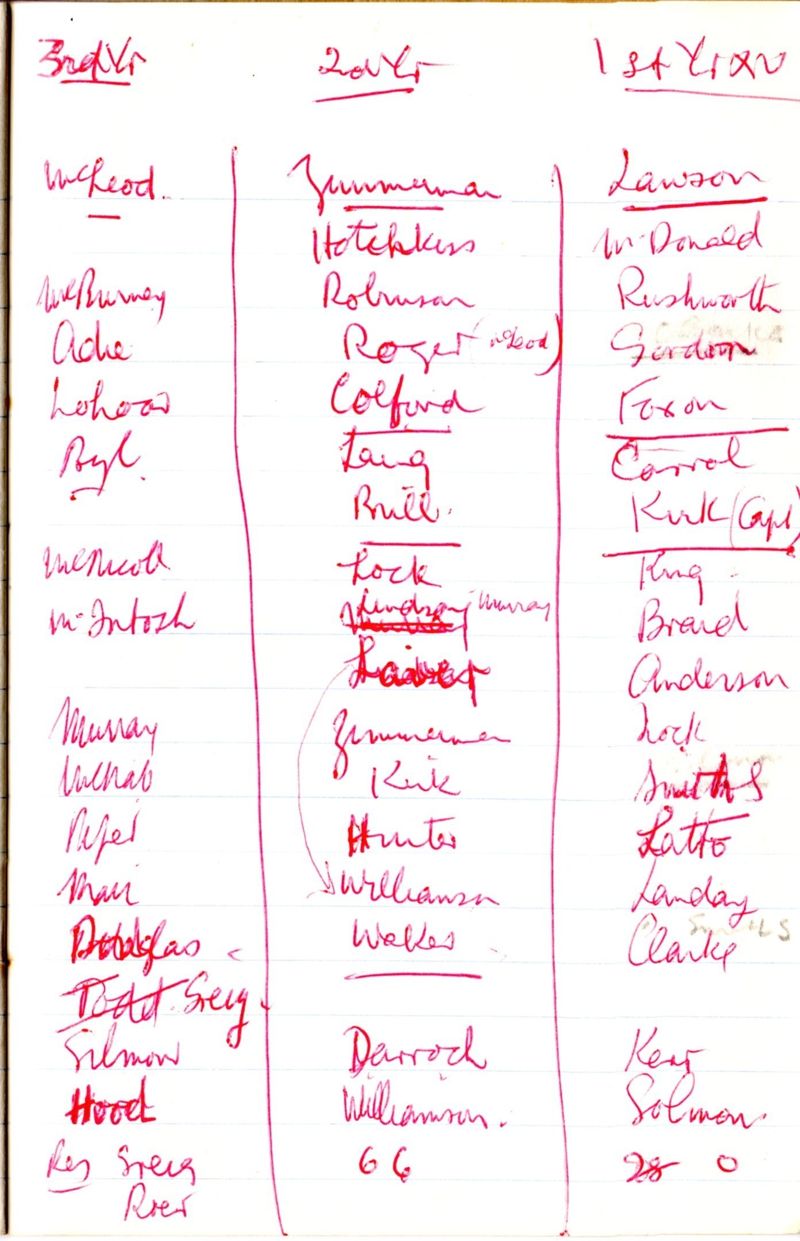 3rd Yr
McLeod.
McBurney
Adie
Byl.
McNicoll
McIntosh
Murray
McNab
Piper
Mair
Douglas
Todd. Greig.
Gilmour
Hood
Res Greig
2nd Yr
Zimmerman
Hotchkiss
Robinson
Roger (McLeod)
Colford
Lang
Brill.
Lock
Lindsay Murray
Laver
Zimmerman
Kirk
Hunter
Williamson
Wakes
Darroch
Williamson.
66
1st Yr XV
Lawson
McDonald
Rushworth
Gordon
Foxon
Carrol
Kirk (Capt)
King.
Braid
Anderson
Lock
Smith S
Latto
Landay
Clarke
Kerr
Solmon.
28 0